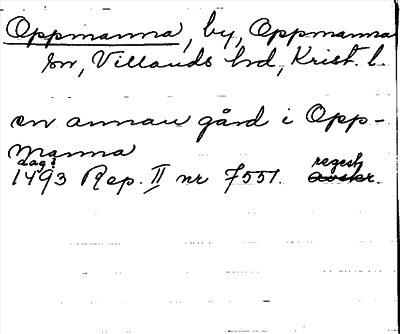 Oppmanna, by, Oppmanna
sn, Villands hd, Krist. l.
en annan gård i Opp-
manna
dag?
1493 Rep. II nr 7557. regest
avskr.